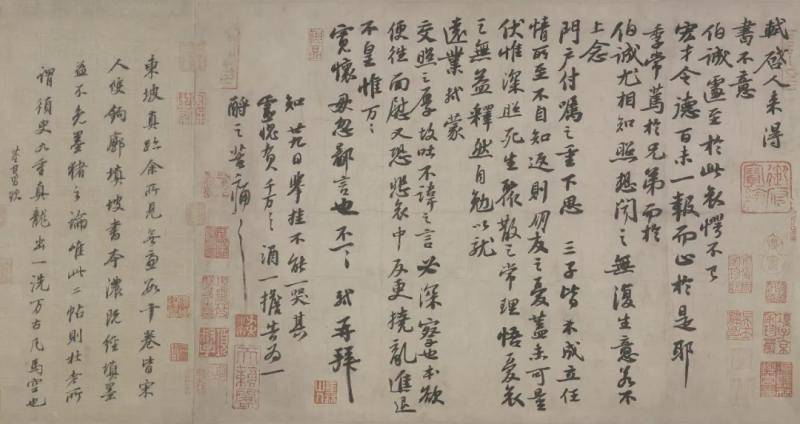 軾啓人來得
書不意
伯誠遽至於此哀愕不已
宏才令德百未一報而止於是耶
季常篤於兄弟而於
伯誠尤相知照想聞之無復生意若不
上念
門戶付囑之重下思三子皆未成立任
情所至不自知返則朋友之憂蓋未可量
伏惟深照死生聚散之常理悟憂哀
之無益釋然自勉以就
遠業軾蒙
交照之厚故吐不諱之言必深察也本欲
便往面慰又恐悲哀中反更撓亂進退
不皇惟万万
寬懷毋忽鄙言也不一一軾再拜
知廿九日舉挂不能一哭其
靈愧負千万千万酒一擔告為一
酹之苦痛苦痛
東坡真跡余所見無慮數十卷皆宋
人雙鉤廓填坡書本濃既經填墨
益不免墨豬之論唯此二帖則杜老所
謂須臾九重真龍出一洗万古凡馬空也
董其昌跋